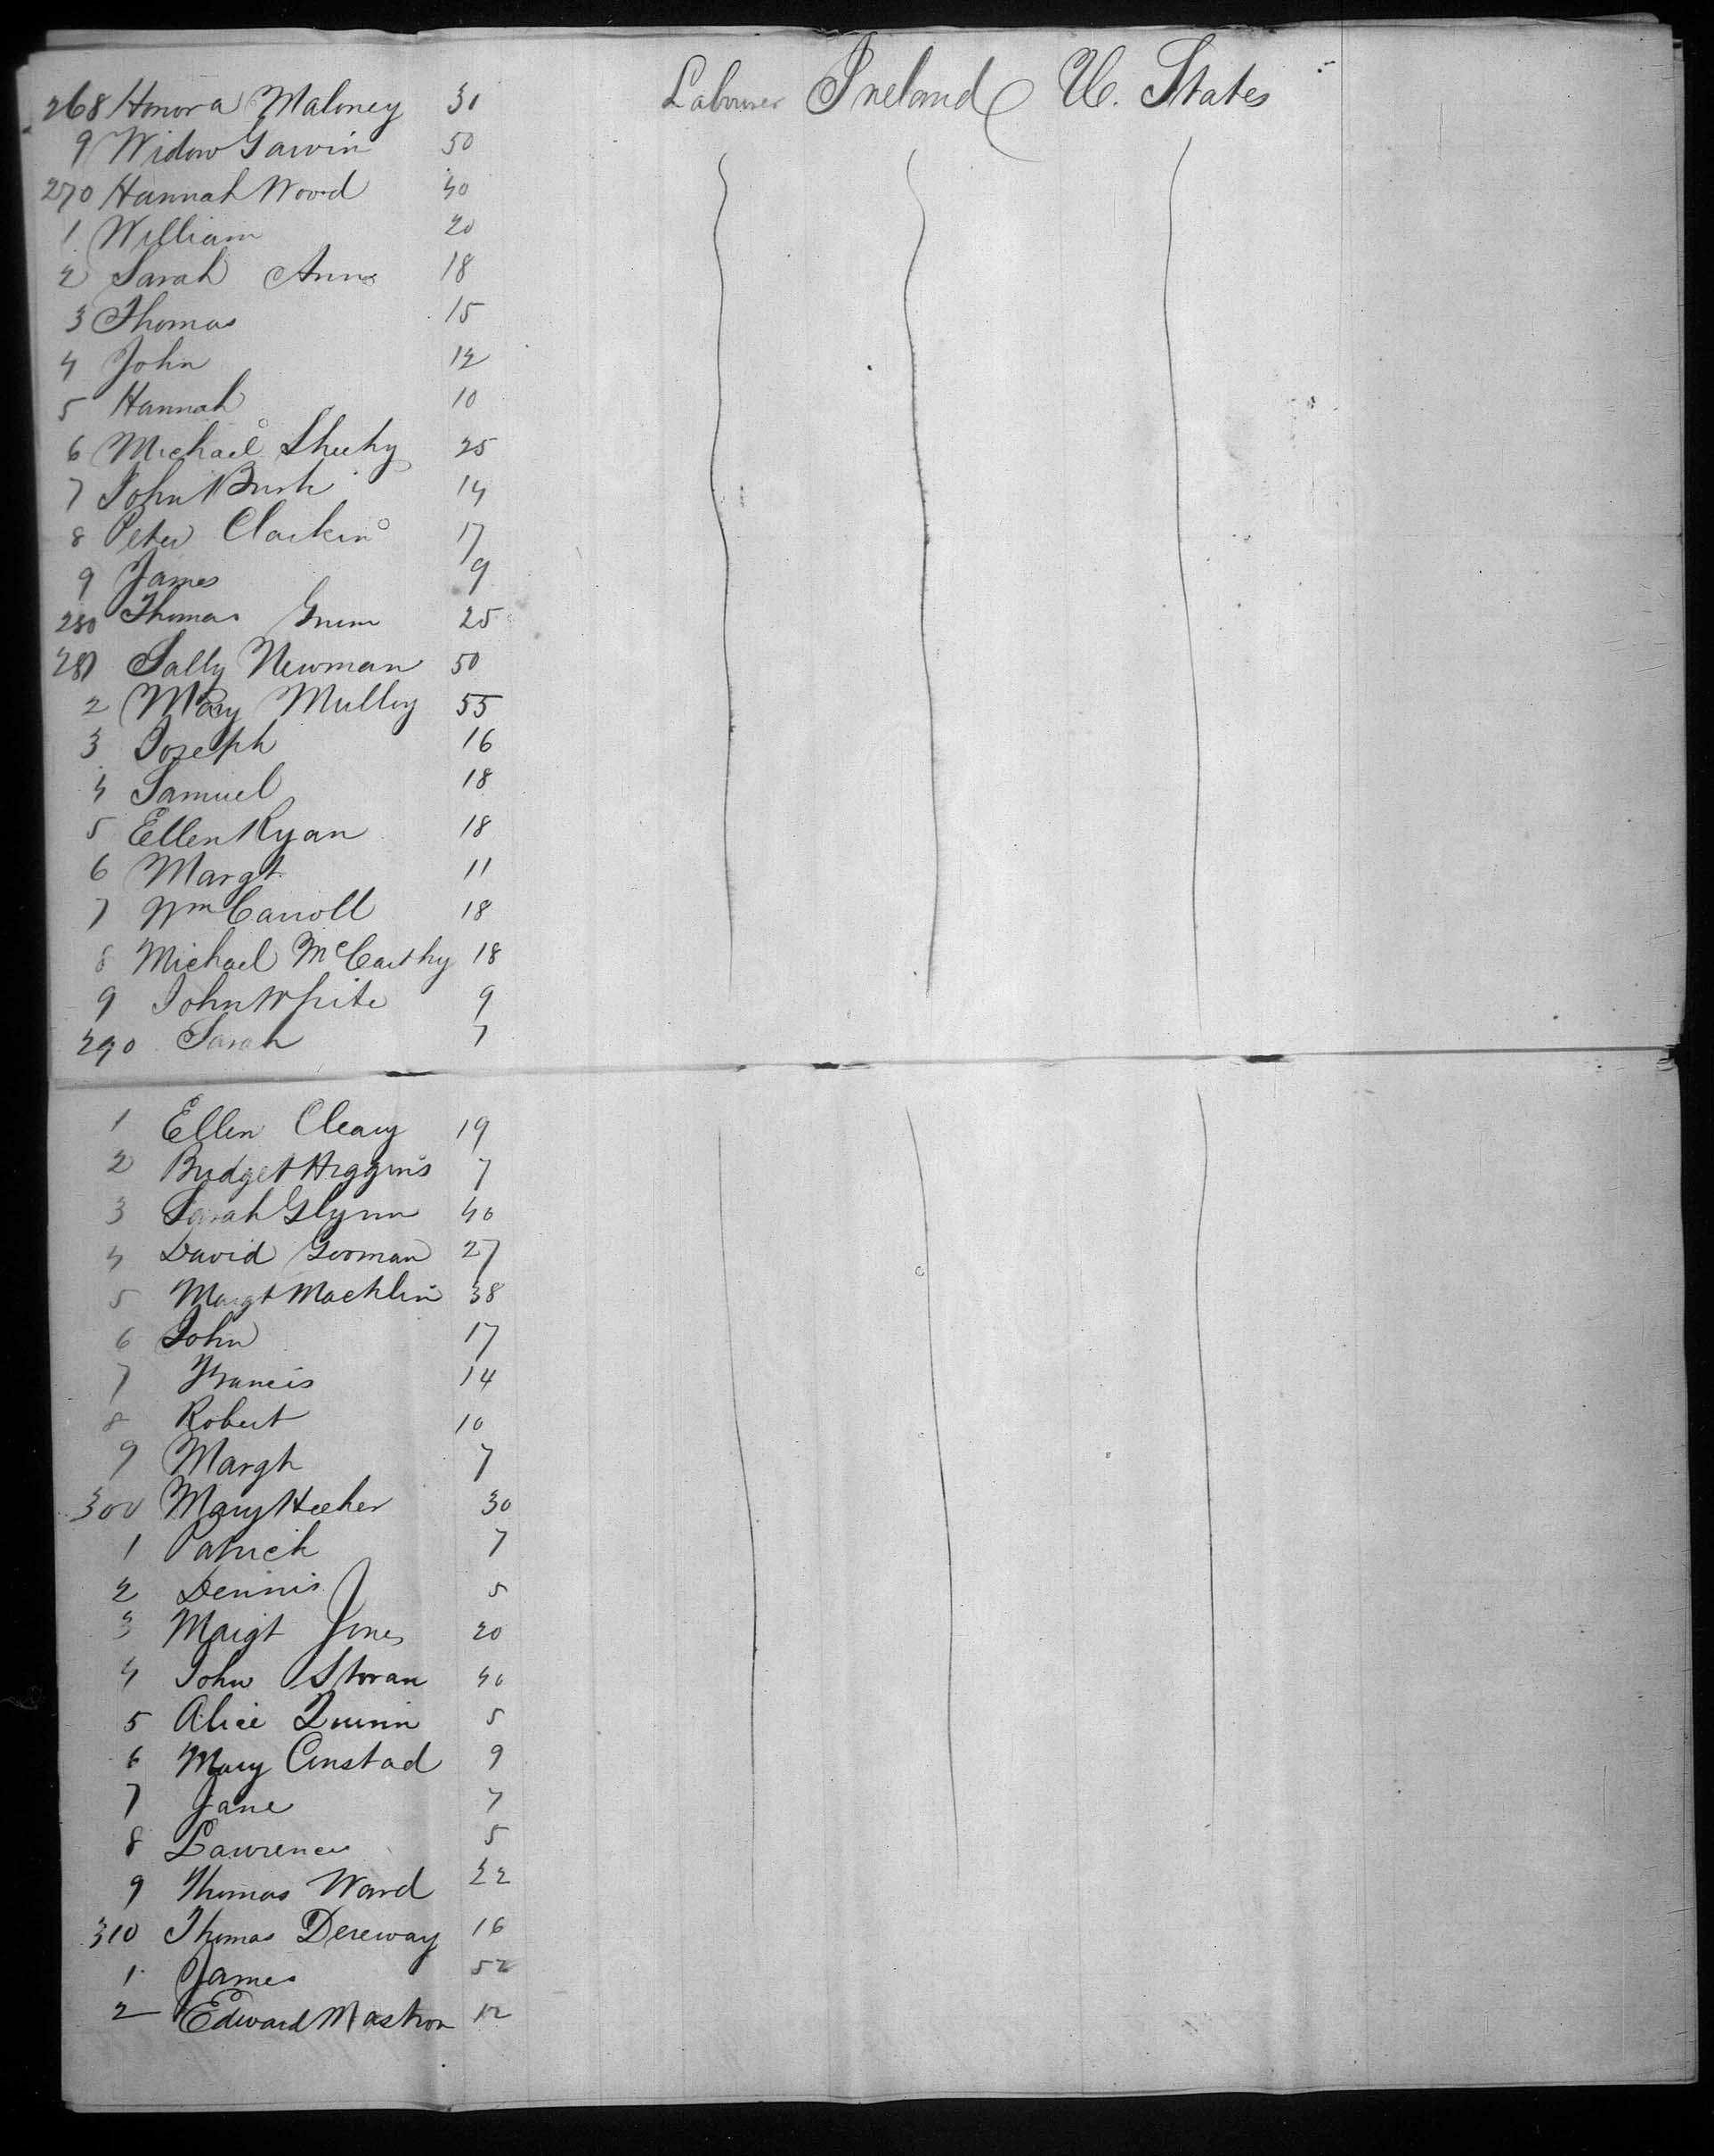 268 Honora Maloney 30 Labourer Ireland U. States
9 Widow Gawin 50
270 Hannah Wood 40
1 William 20
2 Sarah Ann 18
3 Thomas 15
4 John 12
5 Hannah 10
6 Michael Sheehy 25
7 John Bush 14
8 Peter Clarkin 17
9 James 9
280 Thomas 25
281 Sally Newman 50
2 Mary Mulley 55
3 Joseph 16
4 Samuel 18
5 Ellen Ryan 18
6 Margt 11
7 Wm Carroll 18
8 Michael McCarthy 18
9 John White 9
290 Sarah 7
1 Ellen Cleary 19
2 Bridget Higgins 7
3 Sarah Glynn 40
4 David Gorman 27
5 Margt Machlin 38
6 John 17
7 Francis 14
8 Robert 10
9 Margt 7
300 Mary Heeher 30
1 Patrick 7
2 Dennis 5
3 Margt Jones 20
4 John Storan 40
5 Alice Quinn 5
6 Mary Custad 9
7 Jane 7
8 Lawrence 5
9 Thomas Ward 22
310 Thomas Dereway 16
1 James 52
2 Edward Mastron 12